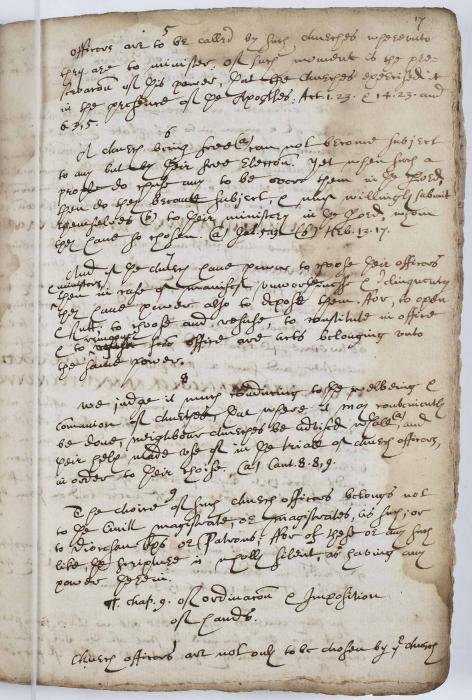 17
5
officers are to be called by such churches whereunto
they are to minister. of such moment is the pre-
servacon of this power, that the churches exercised it
in the presence of the Apostles. Act. 1. 23. & 14. 23. and
6. 3. 5.
6
A church being free (a) can not become subject
to any but by their free Election. Yet when such a
people do chuse any to be over them in the Lord,
then do they become subject, & must willingly submit
themselves (b) to their ministry in the Lord, whom
they have so chosen. (a) Gal. 5. 13. (b) Heb. 13. 17.
7
And if the church have power to choose their officers
& ministers, then in case of manifest unworthyness & delinquency
they have power also to depose them. ffor, to open
& shutt, to choose and refuse, to constitute in office
& to remove from office are acts belonging unto
the same power.
8
We judge it much conducing to the welbeing &
comunion of churches, that where it may conveniently
be done, neighbour churches be advised withall, (a) and
their help made use of in the triall of church officers,
in order to their choise. (a) Cant. 8. 8. 9.
9
The choice of such church officers belongs not
to the Civill magistrate, or magistrates, as such, or
to Diocesan Bps or Patrons: ffor of these or any such
like, the scripture is wholly silent, as having any
power therein.
¶. chap. 9. of ordinacon & Imposition
of hands.
Church officers are not only to be chosen by ye church